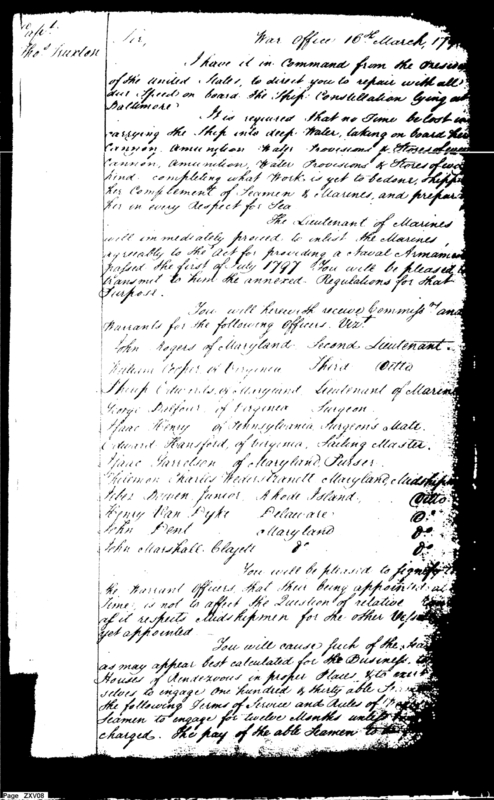 Capt.
Thos. Truxton
Sir, War Office 16th March, 179
I have it in Command from the Presiden
of the United States, to direct you to repair with all
due Speed on board the Ship Constellation lying at
Baltimore
It is required that no Time be lost in
carrying the Ship into deep Water, taking on board her
Cannon, Amunition Water Provisions & Stores of every
Cannon, Amunition, Water Provisions & Stores of every
kind completing what Work is yet to be done, shipping
her Complement of Seamen & Marines, and preparing
her in every Respect for Sea
The Lieutenant of Marines
will immediately proceed to inlist the Marines,
agreeably to the Act for providing a Naval Armament
passed the first of July 1797 You will be pleased to
transmit to him the annexed Regulations for that
Purpose.
You will herewith receive Commissns and
Warrants for the following Officers. Vizt
John Rogers of Maryland Second Lieutenant.
William Cooper of Virginia Third Ditto
Edwards, of Maryland Lieutenant of Marines
George Balfour of Virginia Surgeon
Isaac Henry of Pennsylvania Surgeon's Mate.
Edward Hansford, of Virginia, Sailing Master.
Isaac Garretson of Maryland, Purser.
Charles Wederstrandt Maryland, Midshipm
Jabez Bowen Junior Rhode Island. Ditto
Henry Van Dyke Delaware Do.
John Dent Maryland do
John Marshall Clagett do do
You will be pleased to signify to
the Warrant Officers, that their being appointed at
Time, is not to affect the Question of relative Rank
as it respects Midshipmen for the other Vessels
yet appointed
You will cause such of the
as may appear best calculated for the Business to
Houses of Rendezvous in proper Places, & to exert
selves to engage One hundred & thirty able Seamen
the following Terms of Service and Rules of
Seamen to engage for twelve Months unless
charged. The pay of the able Seamen to
Page ZXV08